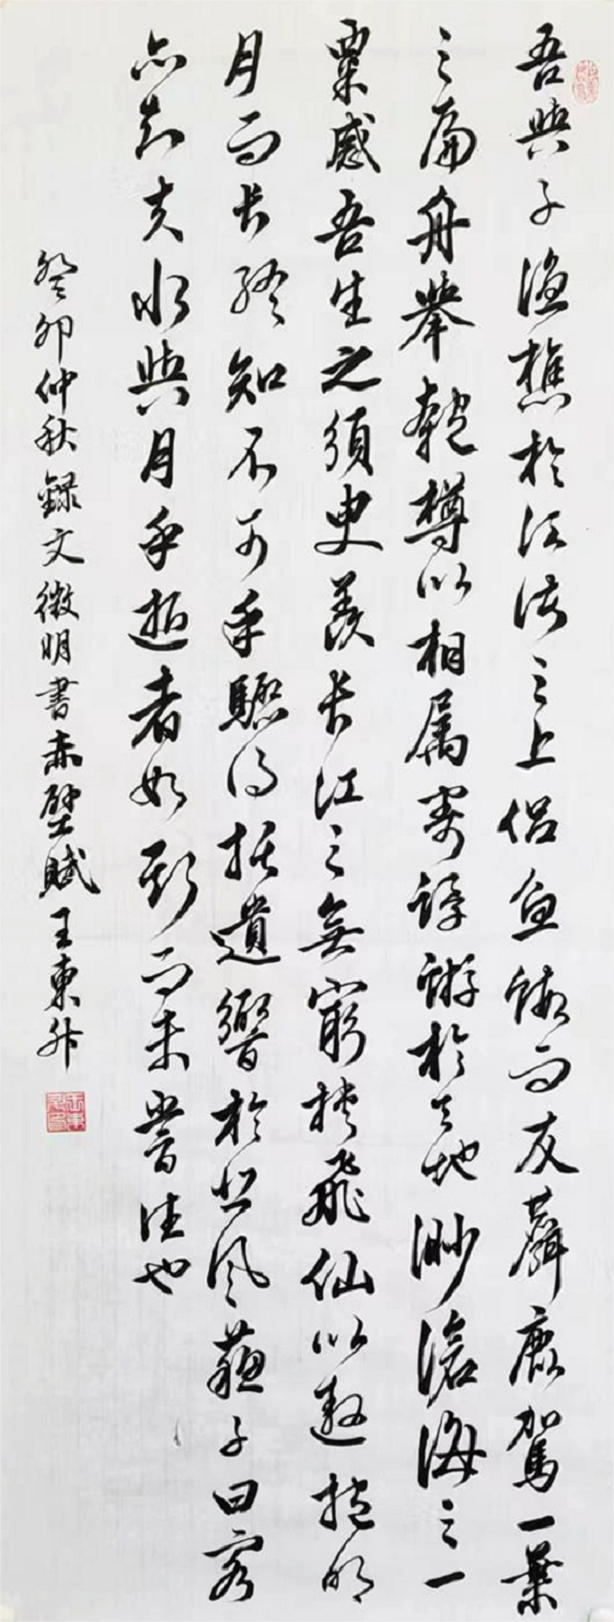 吾與子漁樵於江渚之上侣魚蝦而友麋鹿駕一葉
之扁舟舉匏樽以相属寄蜉蝣於天地渺滄海之一
粟感吾生之須臾羨長江之無窮挾飛仙以遨抱明
月而長終知不可乎驟得托遺響於悲風蘇子曰客
亦知夫水與月乎逝者如斯而未嘗往也
癸卯仲秋録文徵明書赤壁賦王東升